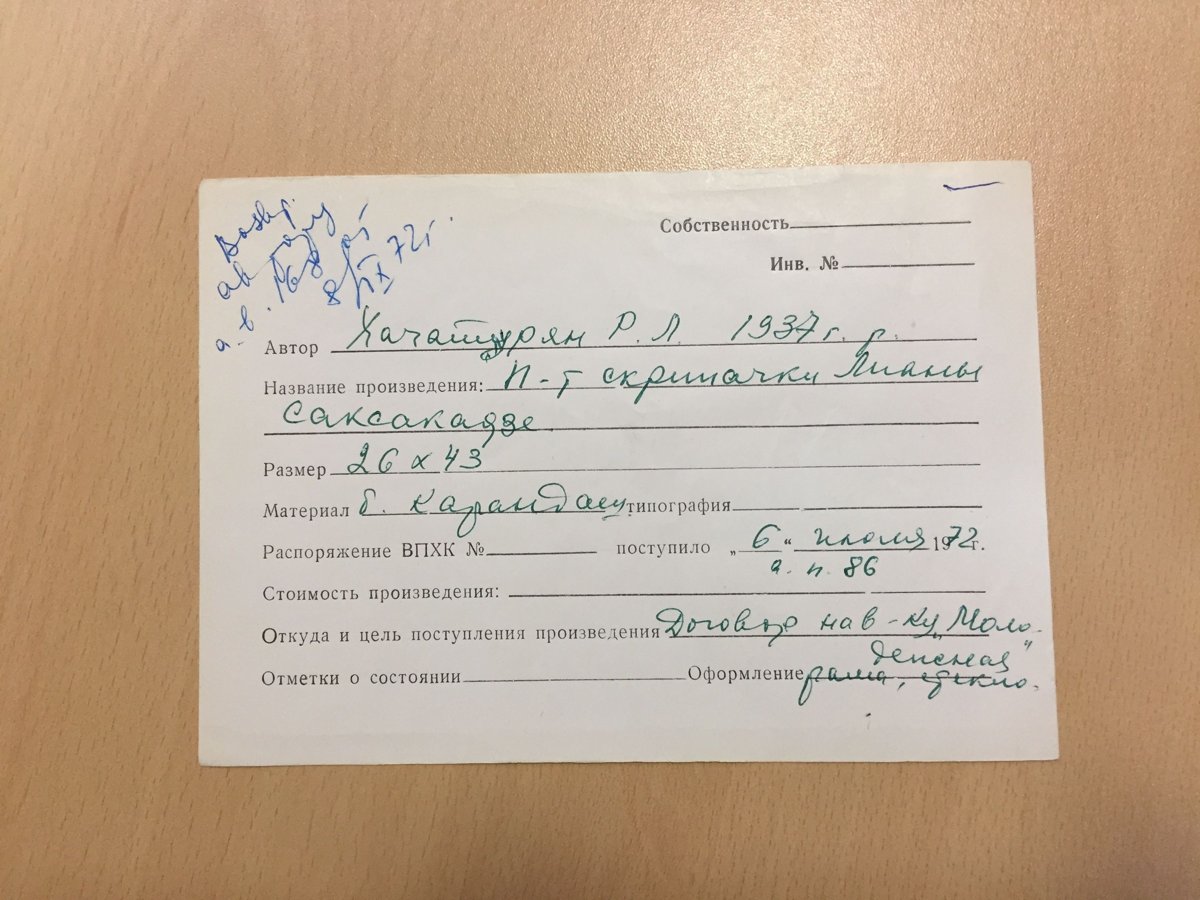 Возвр.
автору
а. в. 168 от
8/IX 72 г.
Собственность
Инв. №
Автор Хачатурян Р. Л. 1937 г. р.
Название произведения: П-т скрипачки Лианы
Саксакадзе
Размер 26 х 43
Материал б. карандаш типография
Распоряжение ВПХК № поступило „6“ июля 1972 г.
а. п. 86
Стоимость произведения:
Откуда и цель поступления произведения Договор на в-ку „Моло-
дежная"
Отметки о состоянии Оформление рама, стекло.